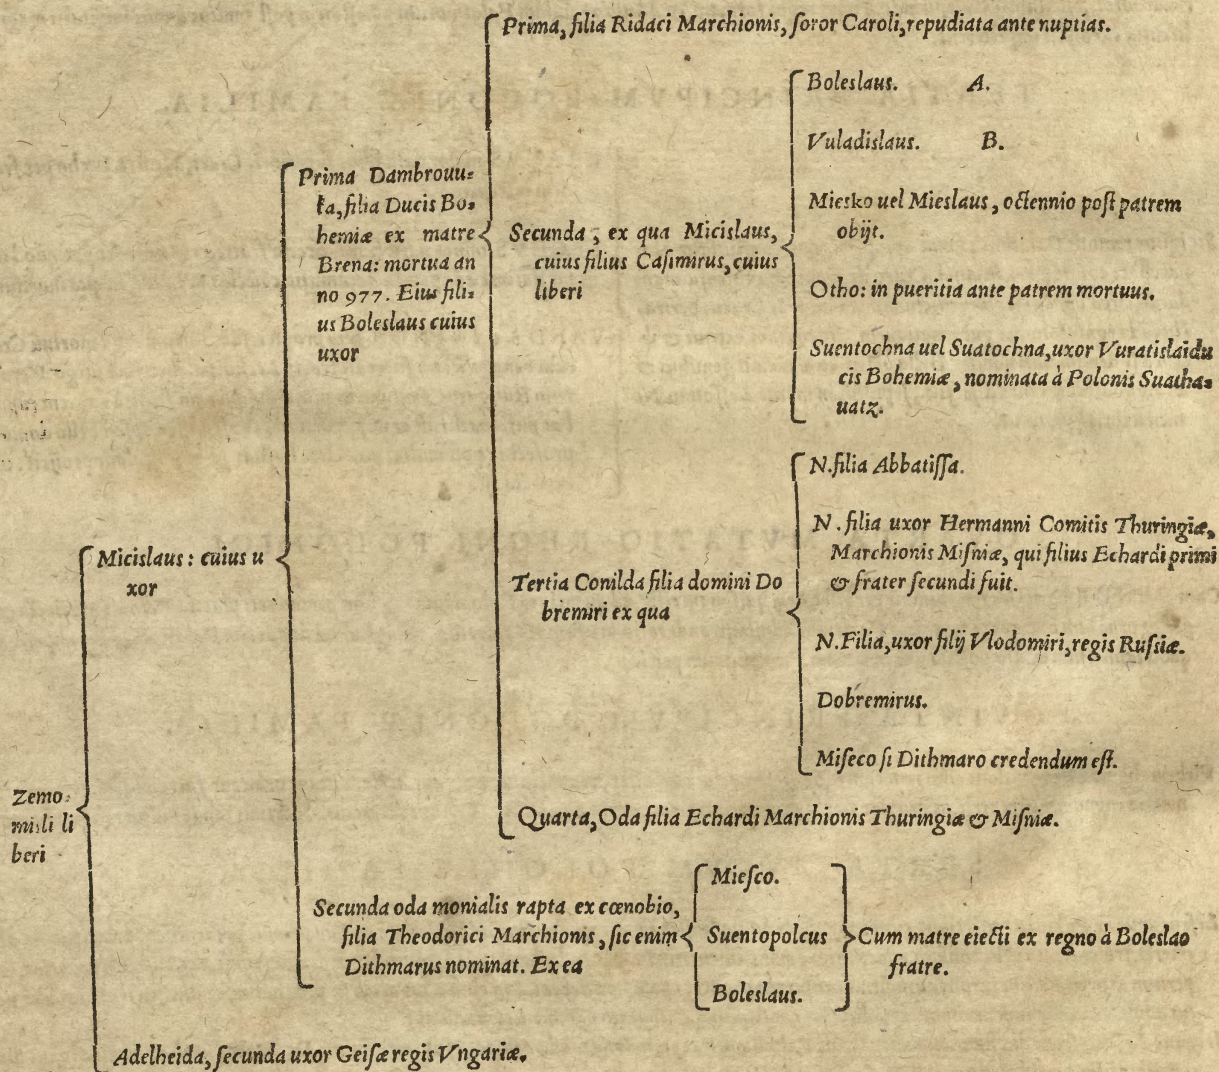 Prima, filia Ridaci Marchionis, soror Caroli, repudiata ante nuptias.
Prima Dambrouu=
ka, filia Ducis Bo=
hemiæ ex matre
Brena: mortua an
no 977. Eius fili=
us Boleslaus cuius
uxor
Secunda, ex qua Micislaus,
cuius filius Casimirus, cuius
liberi
Boleslaus. A.
Vuladislaus. B.
Miesko uel Mieslaus, octennio post patrem
obijt.
Otho: in pueritia ante patrem mortuus.
Suentochna uel Suatochna, uxor Vuratislai du
cis Bohemiæ, nominata à Polonis Suatha=
uatz.
Micislaus: cuius u
xor
Tertia Conilda filia domini Do
bremiri ex qua
N. filia Abbatissa.
N. filia uxor Hermanni Comitis Thuringiæ,
Marchionis Misniæ, qui filius Echardi primi
& frater secundi fuit.
N. Filia, uxor filij Vlodomiri, regis Russiæ.
Dobremirus.
Miseco si Dithmaro credendum est.
Quarta, Oda filia Echardi Marchionis Thuringiæ & Misniæ.
Zemo=
misli li
beri
Secunda oda monialis rapta ex cœnobio,
filia Theodorici Marchionis, sic enim
Dithmarus nominat. Ex ea
Miesco.
Suentopolcus
Boleslaus.
Cum matre eiecti ex regno à Boleslao
fratre.
Adelheida, secunda uxor Geisæ regis Vngariæ.